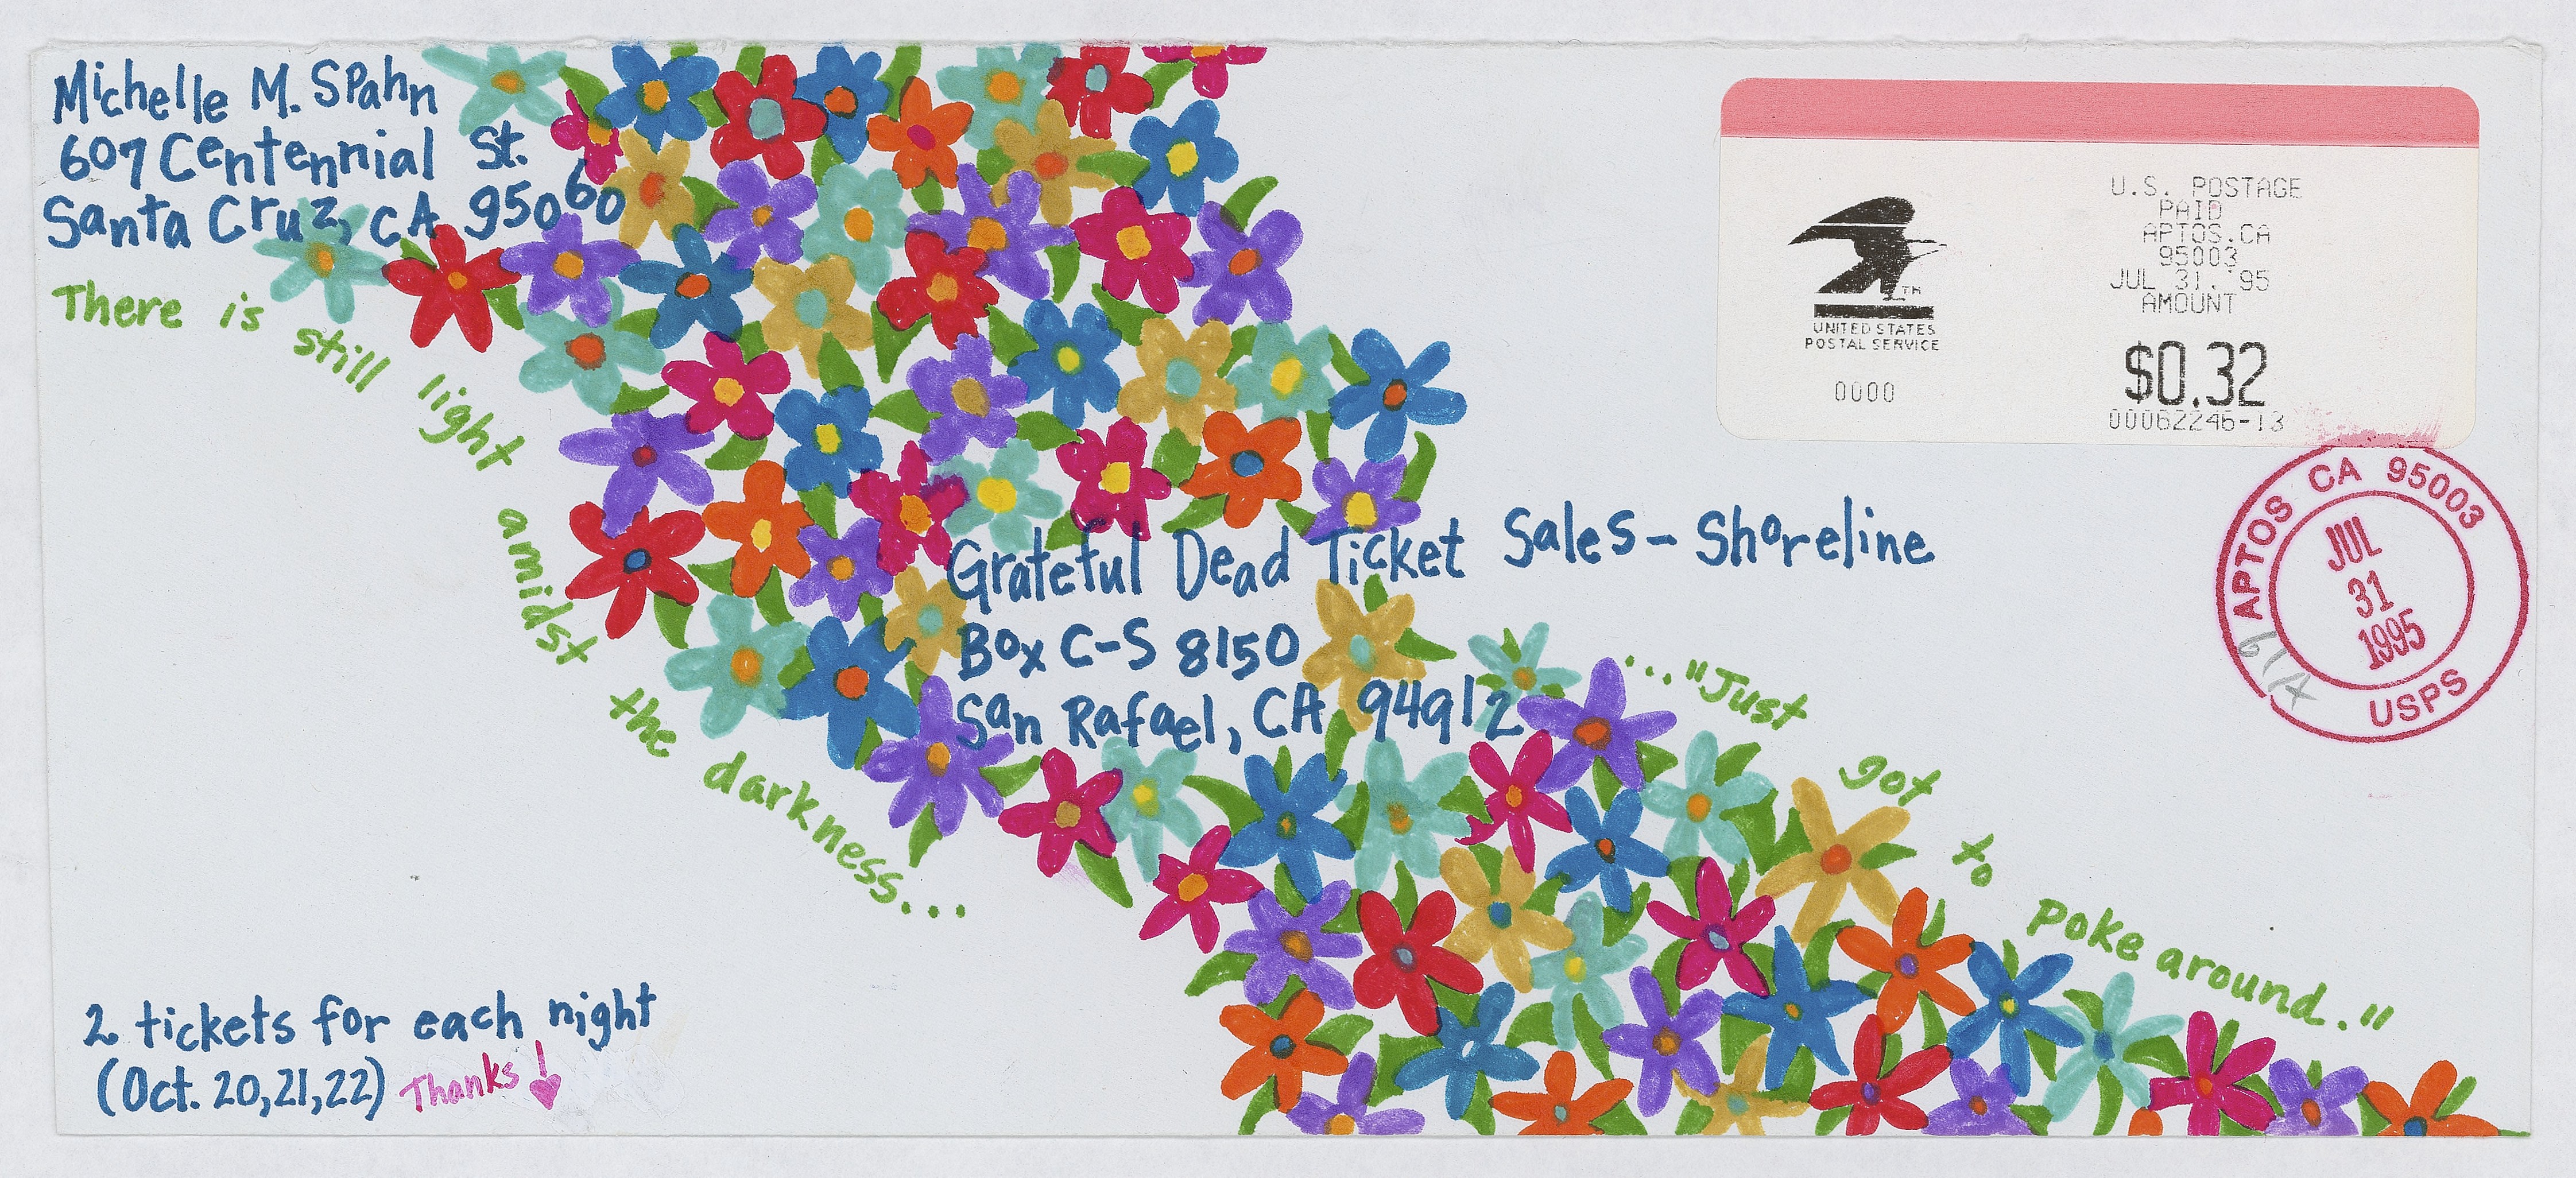 Michelle M. Spahn
607 Centennial St.
Santa Cruz, CA 95060
There is still light amidst the darkness...
U.S. POSTAGE
PAID
APTOS.CA
95003
JUL 31. '95
AMOUNT
$0.32
00062246-13
TM
UNITED STATES
POSTAL SERVICE
0000
APTOS CA 95003
JUL
31
1995
USPS
Grateful Dead Ticket Sales - Shoreline
Box C-S 8150
San Rafael, CA 94912
..."Just got to poke around."
2 tickets for each night
(Oct. 20,21,22) Thanks!